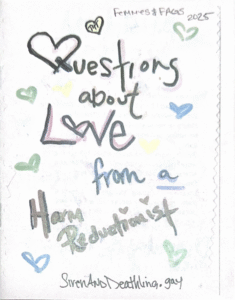 FEMMES & FAGGS
2025
Questions
about
Love
from a
Harm
Reductionist
SirenAndDeathling.gay